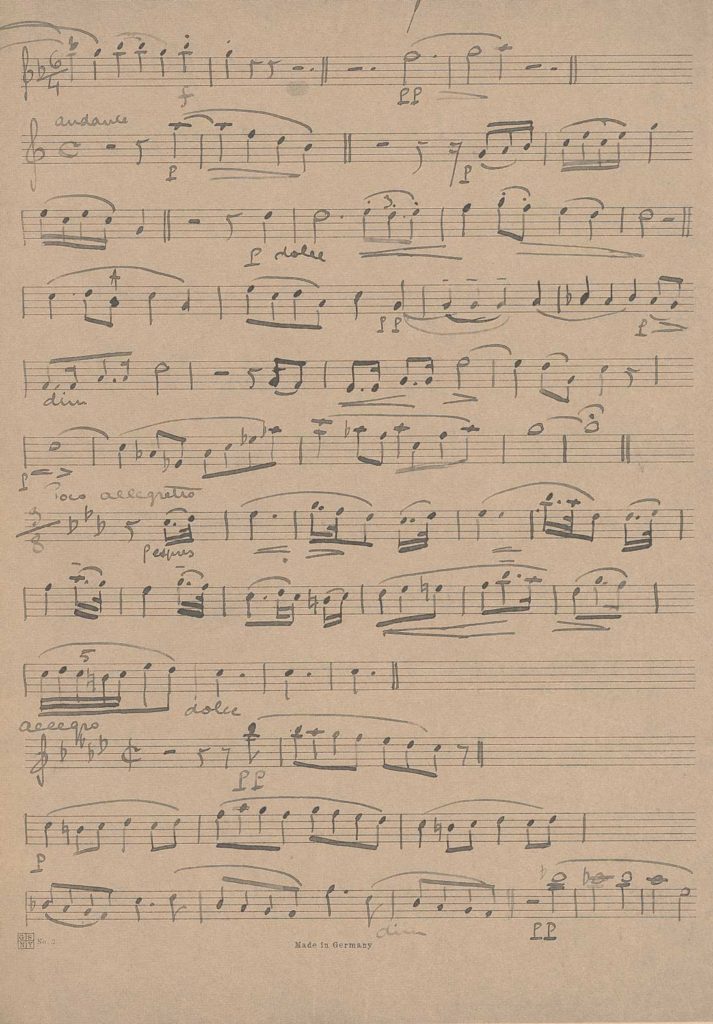 6
4
f
PP
andante
C
P
P
3
P dolce
PP
P
dim
P
Poco allegretto
3
8
P espres
5
dolce
allegro
PP
P
dim
PP
No. 2
Made in Germany